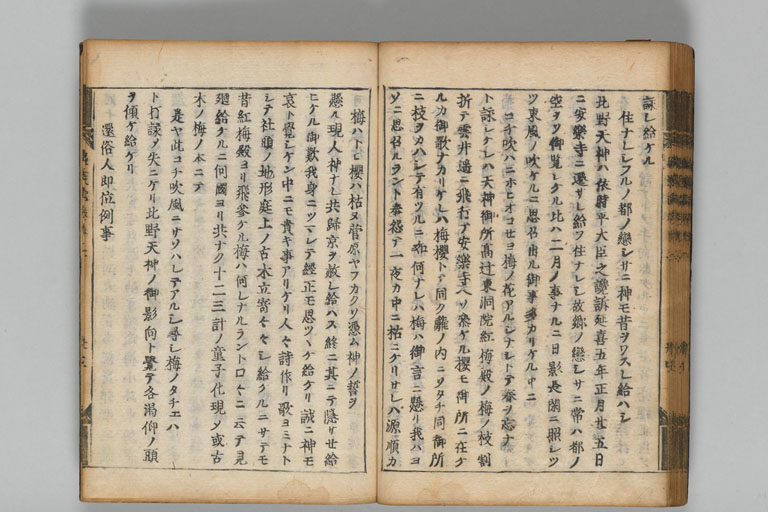 詠レ給ケル
住ナレシフルノ都ノ戀シサニ神モ昔ヲワスレ給ハシ
北野天神ハ依時平大臣之讒訴延喜五年正月廿五日
ニ安樂寺ニ遷サレ給ツ住ナレシ故郷ノ戀シサニ常ハ都ノ
空ヲソ御覽シケル比ハ二月ノ事ナルニ日影長閑ニ照シツ
ツ東風ノ吹ケルニ思召出ル御事多カリケル中ニ
コチ吹ハニホヒオコセヨ梅ノ花アルシナシトテ春ヲ忘ナ
ト詠シケレハ天神御所高辻東洞院紅梅殿ノ梅ノ枝割
折テ雲井遥ニ飛行テ安樂寺ヘソ參ケル櫻モ御所ニ在ケ
ルカ御歌ナカリケレハ梅櫻トテ同ク籬ノ内ニソタチ同御所
ニ枝ヲカハシテ有ツルニ如何ナレハ梅ハ御言ニ懸リ我ハヨ
ソニ思召ルラント奉怨テ一夜カ中ニ枯ニケリサレバ源順カ
梅ハトヒ櫻ハ枯ヌ菅原ヤフカクソ憑ム神ノ誓ヲ
懸ル現人神ナレ共歸京ヲ赦レ給ハス終ニ其ニテ隱サセ給
ニケル御歎我身ニツマレテ經正モ思ツヽケ給ケリ誠ニ神モ
哀ト覺シケン中ニモ貴キ事アリケリ人々詩作リ歌ヨミナト
シテ社頭ノ地形庭上ノ古木立寄々々シ給ケルニサテモ
昔紅梅殿ヨリ飛參ケル梅ハ何レナルラントロ々ニ云テ見
廻給ケルニ何國ヨリ共ナク十二三計ノ童子化現ノ或古
木ノ梅ノ本ニテ
是ヤ此コチ吹風ニサソハレテアルシ尋シ梅ノタチエハ
ト打詠メ失ニケリ北野天神ノ御影向ト覺テ各渇仰ノ頭
ヲ傾ケ給ケリ
還俗人即位例事